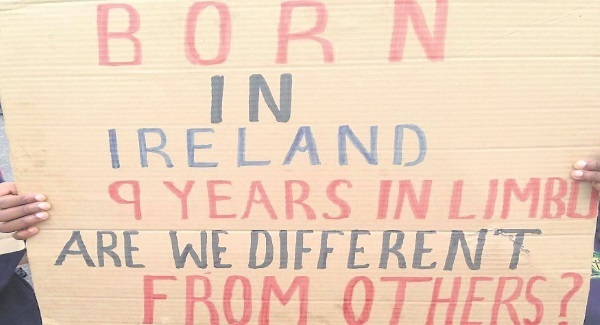 BORN
IN
IRELAND
9 YEARS IN LIMBO
ARE WE DIFFERENT
FROM OTHERS?